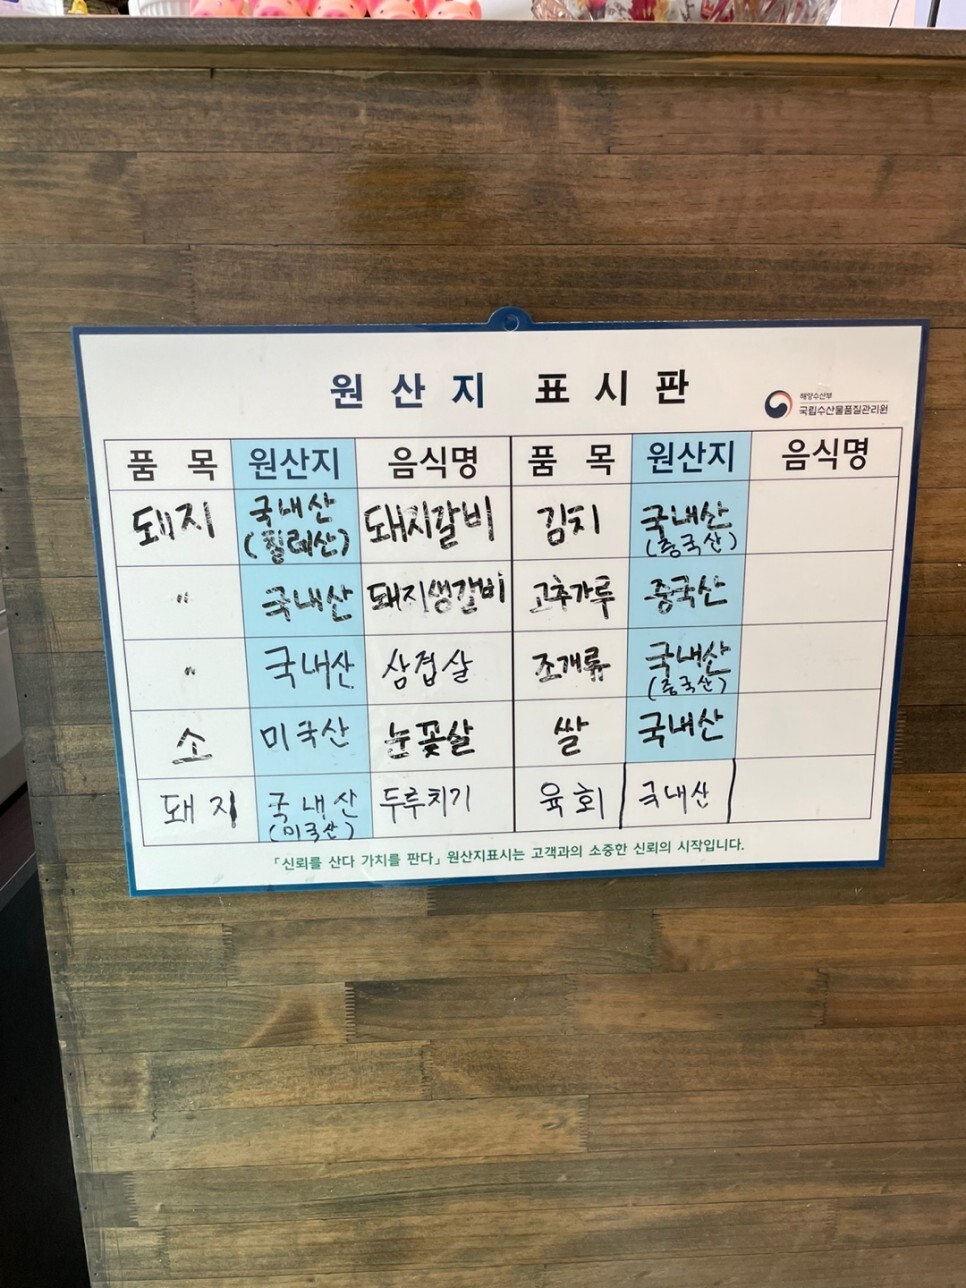 원산지 표시판
해양수산부
국립수산물품질관리원
품 목 원산지 음식명 품 목 원산지 음식명
돼지 국내산 돼지갈비 김치 국내산
(칠레산) (중국산)
〃 국내산 돼지생갈비 고추가루 중국산
〃 국내산 삼겹살 조개류 국내산
(중국산)
소 미국산 눈꽃살 쌀 국내산
돼지 국내산 두루치기 육회 국내산
(미국산)
「신뢰를 산다 가치를 판다」 원산지표시는 고객과의 소중한 신뢰의 시작입니다.